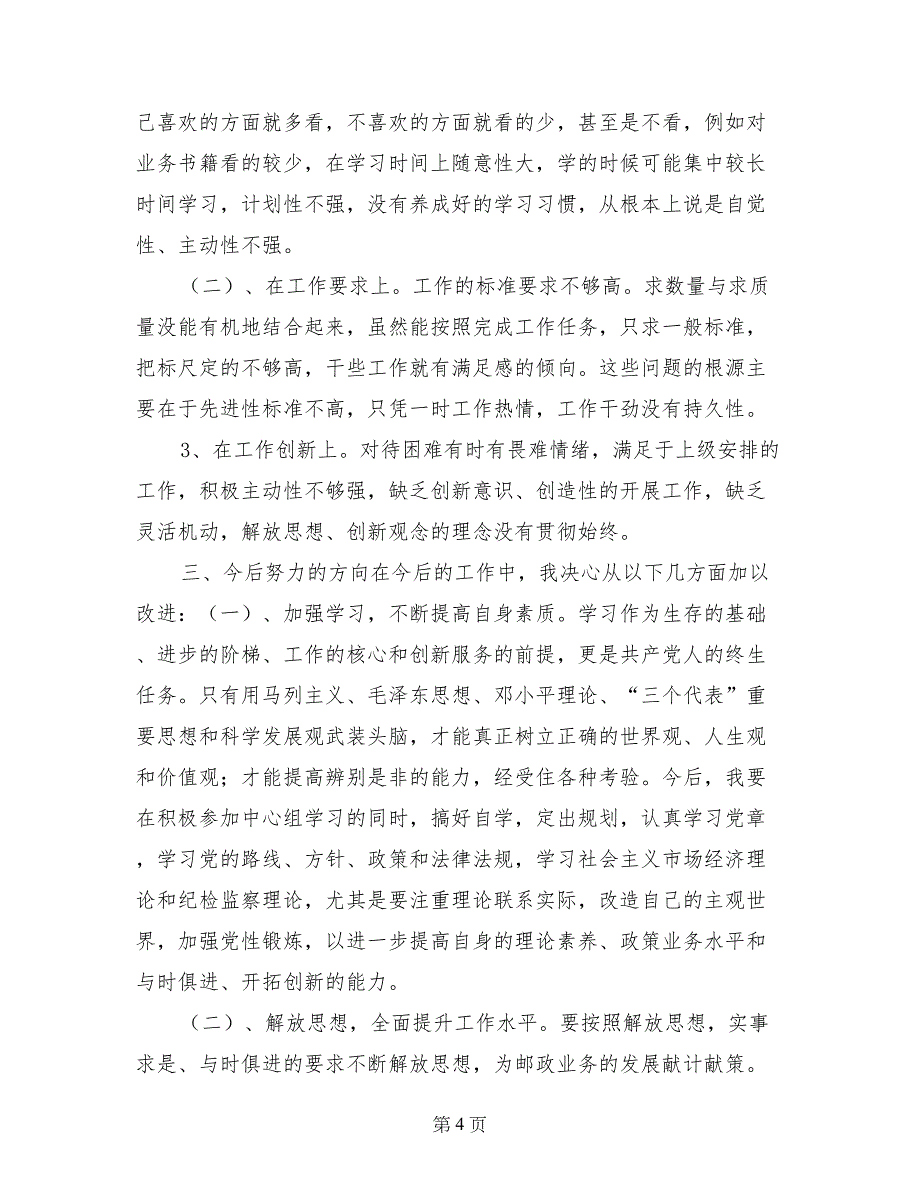 己喜欢的方面就多看，不喜欢的方面就看的少，甚至是不看，例如对
业务书籍看的较少，在学习时间上随意性大，学的时候可能集中较长
时间学习，计划性不强，没有养成好的学习习惯，从根本上说是自觉
性、主动性不强。
（二）、在工作要求上。工作的标准要求不够高。求数量与求质
量没能有机地结合起来，虽然能按照完成工作任务，只求一般标准，
把标尺定的不够高，干些工作就有满足感的倾向。这些问题的根源主
要在于先进性标准不高，只凭一时工作热情，工作干劲没有持久性。
3、在工作创新上。对待困难有时有畏难情绪，满足于上级安排的
工作，积极主动性不够强，缺乏创新意识、创造性的开展工作，缺乏
灵活机动，解放思想、创新观念的理念没有贯彻始终。
三、今后努力的方向在今后的工作中，我决心从以下几方面加以
改进：（一）、加强学习，不断提高自身素质。学习作为生存的基础
、进步的阶梯、工作的核心和创新服务的前提，更是共产党人的终生
任务。只有用马列主义、毛泽东思想、邓小平理论、“三个代表”重
要思想和科学发展观武装头脑，才能真正树立正确的世界观、人生观
和价值观；才能提高辨别是非的能力，经受住各种考验。今后，我要
在积极参加中心组学习的同时，搞好自学，定出规划，认真学习党章
，学习党的路线、方针、政策和法律法规，学习社会主义市场经济理
论和纪检监察理论，尤其是要注重理论联系实际，改造自己的主观世
界，加强党性锻炼，以进一步提高自身的理论素养、政策业务水平和
与时俱进、开拓创新的能力。
（二）、解放思想，全面提升工作水平。要按照解放思想，实事
求是、与时俱进的要求不断解放思想，为邮政业务的发展献计献策。
第 4 页